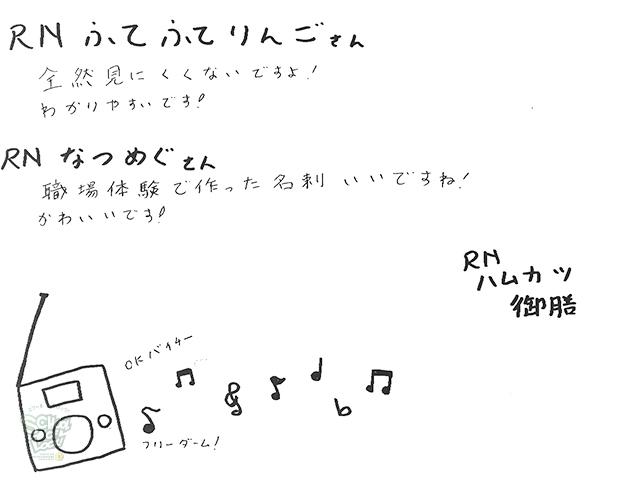 RN ふてふてりんごさん
全然見にくくないですよ!
わかりやすいです!
RN なつめぐさん
職場体験で作った名刺いいですね!
かわいいです!
RN
ハムカツ
御膳
OKバイチー
フリーダーム!